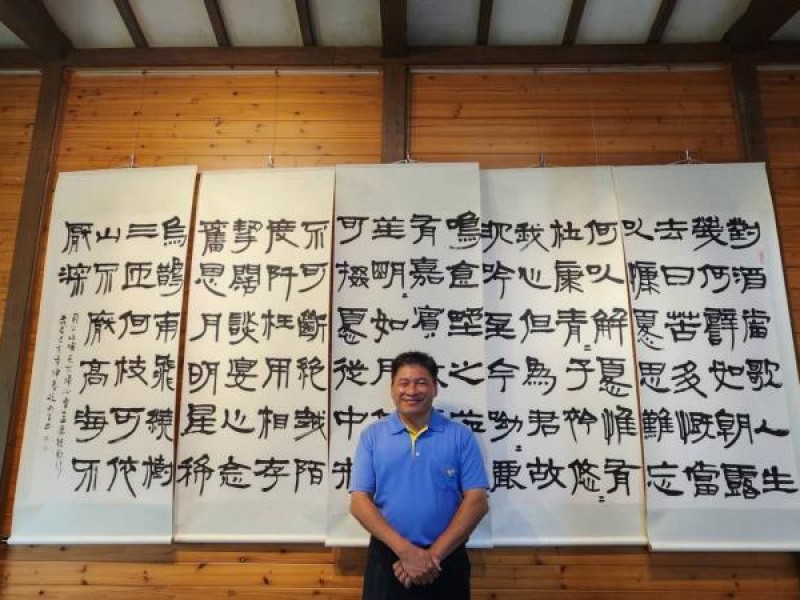 對酒當歌人生
幾何譬如朝露
去日苦多慨當
以慷憂思難忘
何以解憂惟有
杜康青二子衿悠二
我心但為君故
沉吟至今呦二鹿
鳴食埜之苹
有嘉賓
笙明二如月
可掇憂從中來
不可斷絕越陌
度阡枉用相存
契闊談宴心念
舊恩月明星稀
烏鵲南飛繞樹
三匝何枝可依
山不厭高海不
厭深
周公吐哺天下歸心曹孟德短歌行